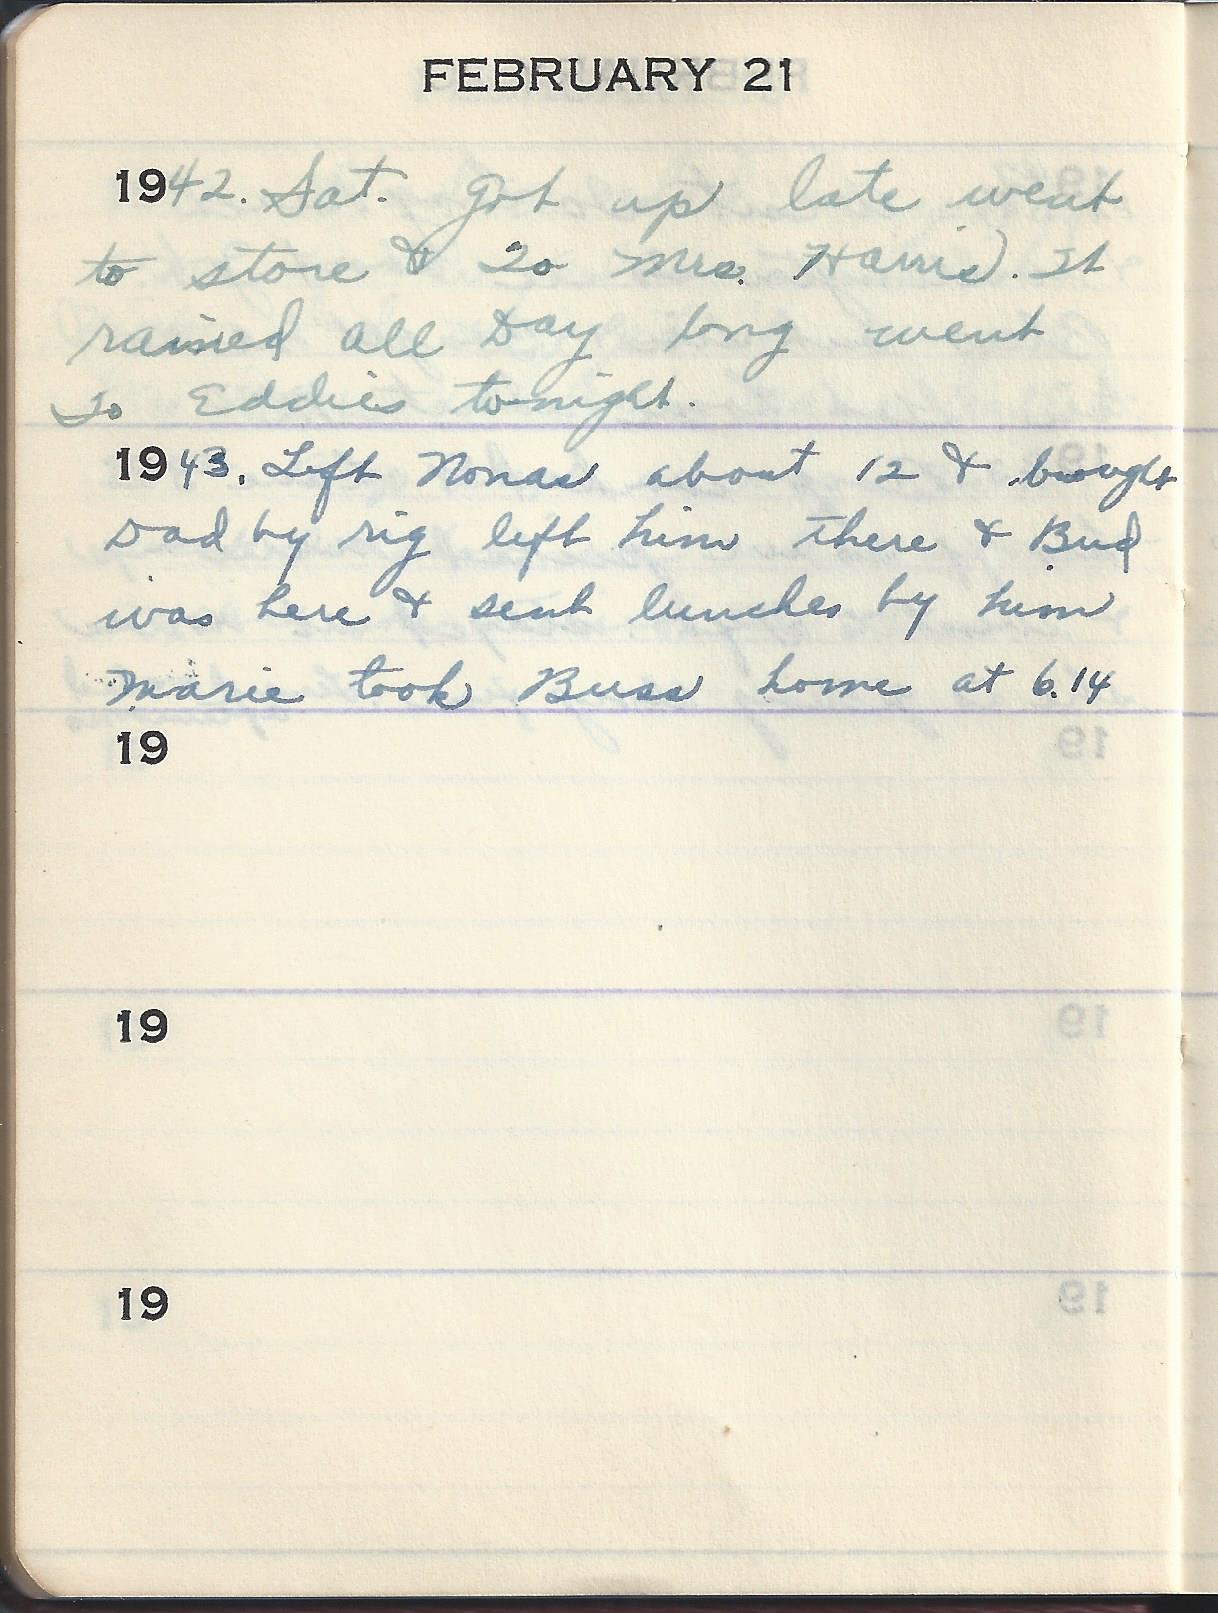 FEBRUARY 21
1942. Sat. Got up late went
to store & To Mrs. Harris. It
rained all Day long went
To Eddies tonight.
1943. Left Nonas about 12 & brought
Dad by rig left him there & Bud
was here & sent lunches by him
Marie took Buss home at 6.14
19
19
19